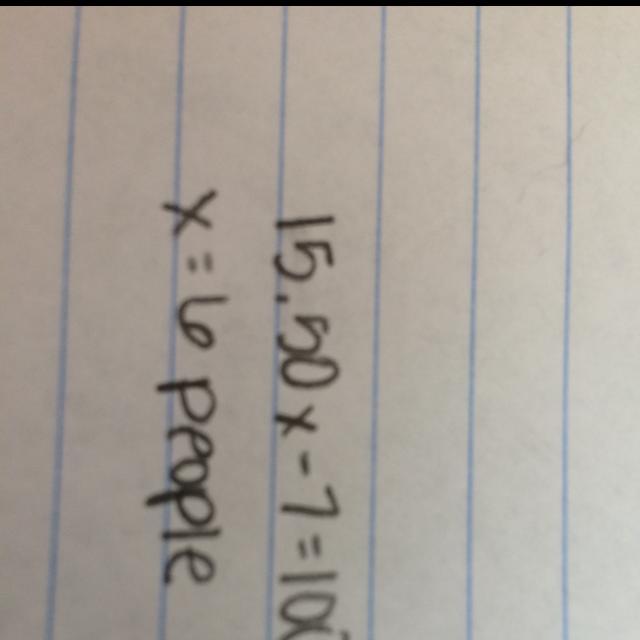 15.50x-7=10
x=6 people